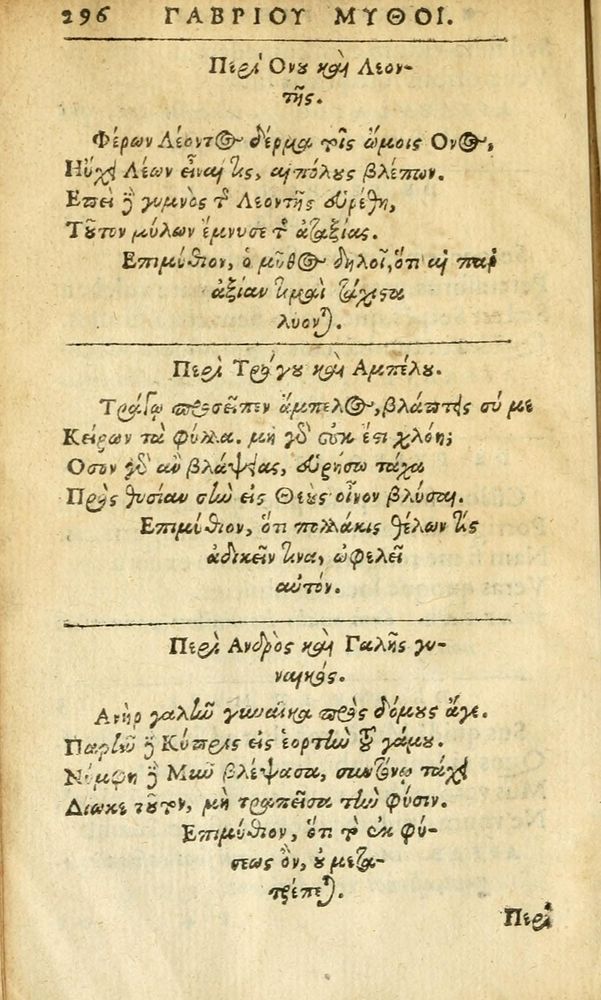 296 ΓΑΒΡΙΟΥ ΜΥΘΟΙ.
Περὶ Ονου καὶ Λεον-
τῆς.
Φέρων Λέοντος δέρμα τοῖς ὤμοις Ονος,
Ηὔχει Λέων εἶναί τις, αἰπόλους βλέπων.
Επεὶ δὲ γυμνὸς τῆς Λεοντῆς εὑρέθη,
Τοῦτον μύλων ἔμνησε τῆς ἀταξίας.
Επιμύθιον, ὁ μῦθος δηλοῖ, ὅτι αἱ παρ
ἀξίαν τιμαὶ τάχιστα
λύονται.
Περὶ Τράγου καὶ Αμπέλου.
Τράγῳ προσεῖπεν ἄμπελος, βλάπτεις σύ με
Κείρων τὰ φύλλα. μὴ γὰρ οὐκ ἔστι χλόη;
Οσον γὰρ ἂν βλάψειας, εὑρήσω τάχα
Πρὸς θυσίαν σὴν εἰς Θεοὺς οἶνον βλύσαι.
Επιμύθιον, ὅτι πολλάκις θέλων τις
ἀδικεῖν τινα, ὠφελεῖ
αὐτόν.
Περὶ Ανδρὸς καὶ Γαλῆς γυ-
ναικός.
Ανὴρ γαλῆν γυναῖκα πρὸς δόμους ἄγε.
Παρῆν δὲ Κύπρις εἰς ἑορτὴν τοῦ γάμου.
Νύμφη δὲ Μῦν βλέψασα, συντόνῳ τάχει
Δίωκε τοῦτον, μὴ τραπεῖσα τὴν φύσιν.
Επιμύθιον, ὅτι τὸ ἐκ φύ-
σεως ὂν, οὐ μετα-
τρέπεται.
Περὶ